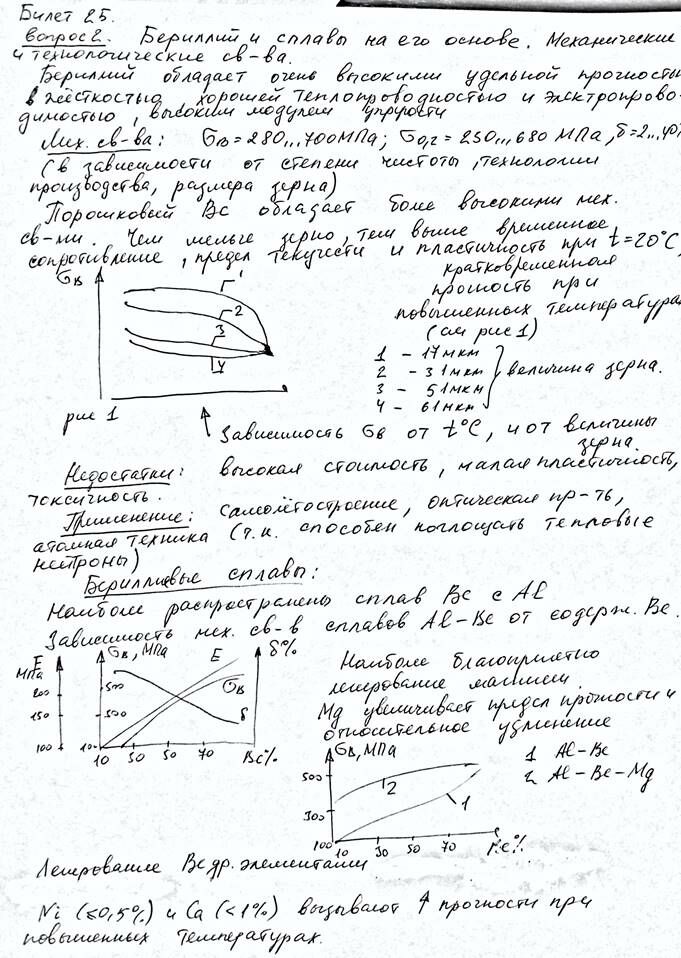 Билет 25.
Вопрос 2. Бериллий и сплавы на его основе. Механические
и технологические св-ва.
Бериллий обладает очень высокими удельной прочностью
жёсткостью хорошей теплопроводностью и электропрово-
димостью, высоким модулем упругости
Мех. св-ва: σв = 280...700МПа; σ0,2 = 230...680 МПа, δ=2...40%
(в зависимости от степени чистоты, технологии
производства, размера зерна)
Порошковый Be обладает более высокими мех.
св-ми. Чем мельче зерно, тем выше временное
сопротивление, предел текучести и пластичность при t=20°C,
кратковременная
прочность при
повышенных температурах
(см рис 1)
σв
1
2
3
4
1 - 17мкм
2 - 31мкм
3 - 51мкм
4 - 61мкм
величина зерна.
рис 1
Зависимость σв от t°C, и от величины
зерна
Недостатки: высокая стоимость, малая пластичность,
токсичность.
Применение: самолётостроение, оптическая пр-ть,
атомная техника (т.к. способен поглощать тепловые
нейтроны)
Бериллиевые сплавы:
Наиболее распространены сплав Be с Al
Зависимость мех. св-в сплавов Al-Be от содерж. Be.
E
МПа
200
150
100
σв, МПа
500
300
100
E
σв
δ
δ%
10 30 50 70 Be%
Наиболее благоприятно
легирование магнием
Mg увеличивает предел прочности и
относительное удлинение
σв, МПа
500
300
100
2
1
10 30 50 70 Be%
1 Al-Be
2 Al-Be-Mg
Легирование Be др. элементами
Ni (≤0,5%) и Ca (<1%) вызывают ↑ прочности при
повышенных температурах.